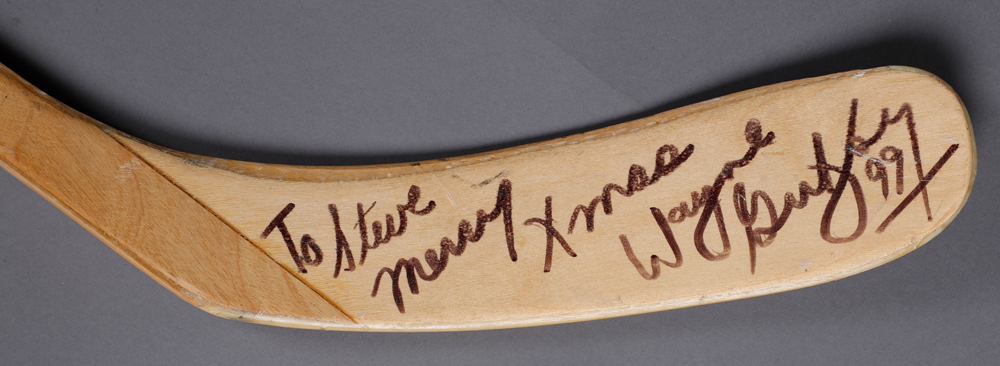 To Steve
Merry Xmas
Wayne Gretzky 99